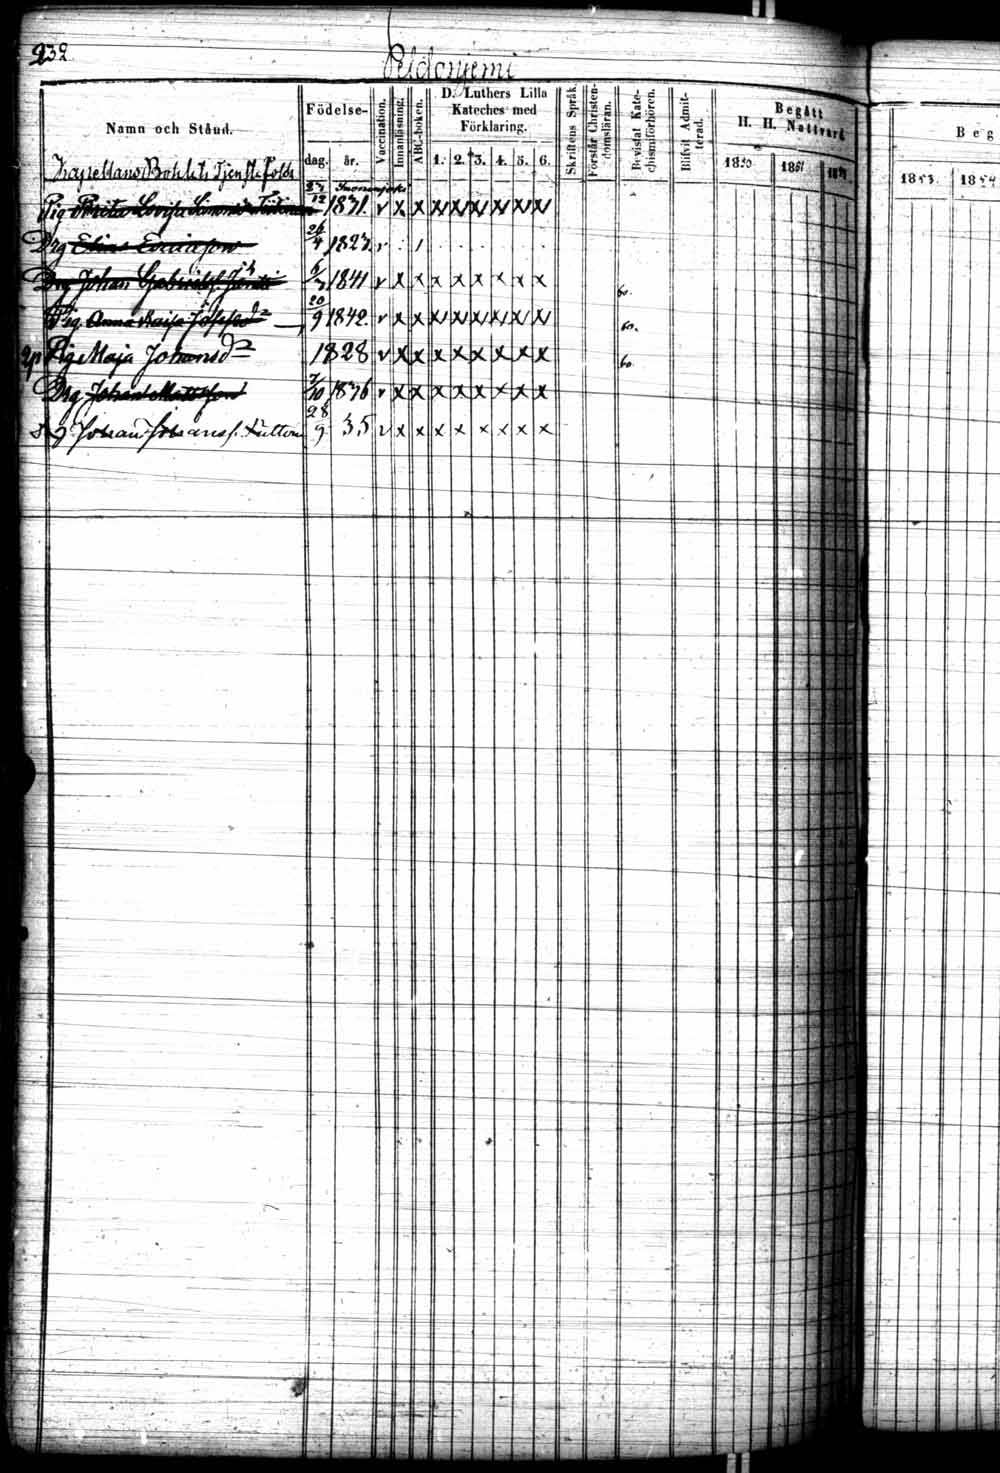 232
Peldonjemi
Namn och Stånd.
Födelse-
dag. år.
Vaccination.
Innanläsning.
ABC-boken.
D. Luthers Lilla Kateches med Förklaring.
1. 2. 3. 4. 5. 6.
Skriftens Språk.
Förstår Christendomsläran.
Bevistat Katechismiförhören.
Blifvit Admitterad.
Begått H. H. Nattvard
1850 1851
Beg
1853 1854
Kapellans Tjenstefolk
Pig Brita Lovisa 23/12 1831. v x x x x x x x x
Drg Elias Ericsson 26/4 1823. v
Drg Johan Gabrielss. 6/7 1841 v x x x x x x x x 60.
Pig. Anna Kaisa Josefsd:r 20/9 1842. v x x x x x x x x 60.
Pig Maja Johansd:r 1828 v x x x x x x x x 60.
Drg Johan Mattsson 7/10 1836 v x x x x x x x x
Johan Johanss. 28/9 35 v x x x x x x x x